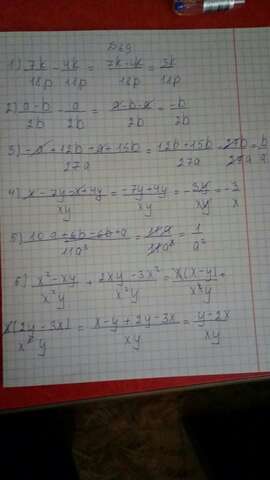 1) 7k/18p - 4k/18p = 7k-4k/18p = 3k/18p
2) a-b/2b - a/2b = a-b-a/2b = -b/2b
3) -a+12b+a+15b/27a = 12b+15b/27a = 27b/27a = b/a
4) x-7y-x+4y/xy = -7y+4y/xy = -3y/xy = -3/x
5) 10a+6b-6b+a/11a³ = 11a/11a³ = 1/a²
6) x²-xy/x²y + 2xy-3x²/x²y = x(x-y)/x²y +
x(2y-3x)/x²y = x-y+2y-3x/xy = y-2x/xy